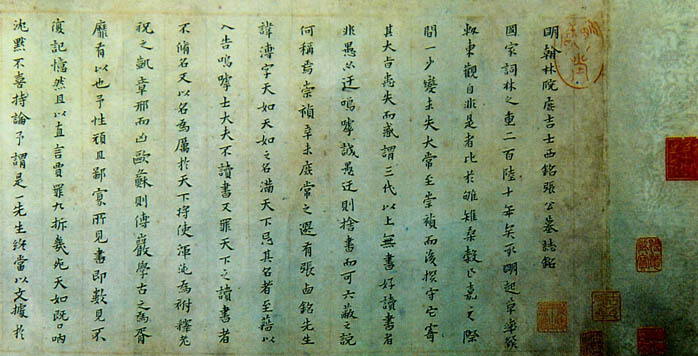 明翰林院庶吉士西銘張公墓誌銘
國家詞林之重二百陸十年矣承明起草
東觀自非是者比於雉桑穀正嘉之際
間一少變未失大常至崇禎而後探守它寄
其大旨恚失而感謂三代以上無書好讀書者
非愚亡迂嗚嘑誠愚迂則捨書而可大蔽之説
何稱焉崇禎辛未庶常之選有張西銘先生
諱溥字天如天如之名滿天下忌其名者至藉以
入告嗚嘑士大夫不讀書又罪天下之讀書者
不脩名又以名為厲於天下將使渾沌為祔窮先
祝之凱章邪而凶歐蘇則傳嚴學古之為胥
靡有以也予性頑且鄙寡所見書即數見不
復記憶然且以直言賈罪九折幾死天如既口吶
沈默不喜持論予謂是一先生終當以文據於